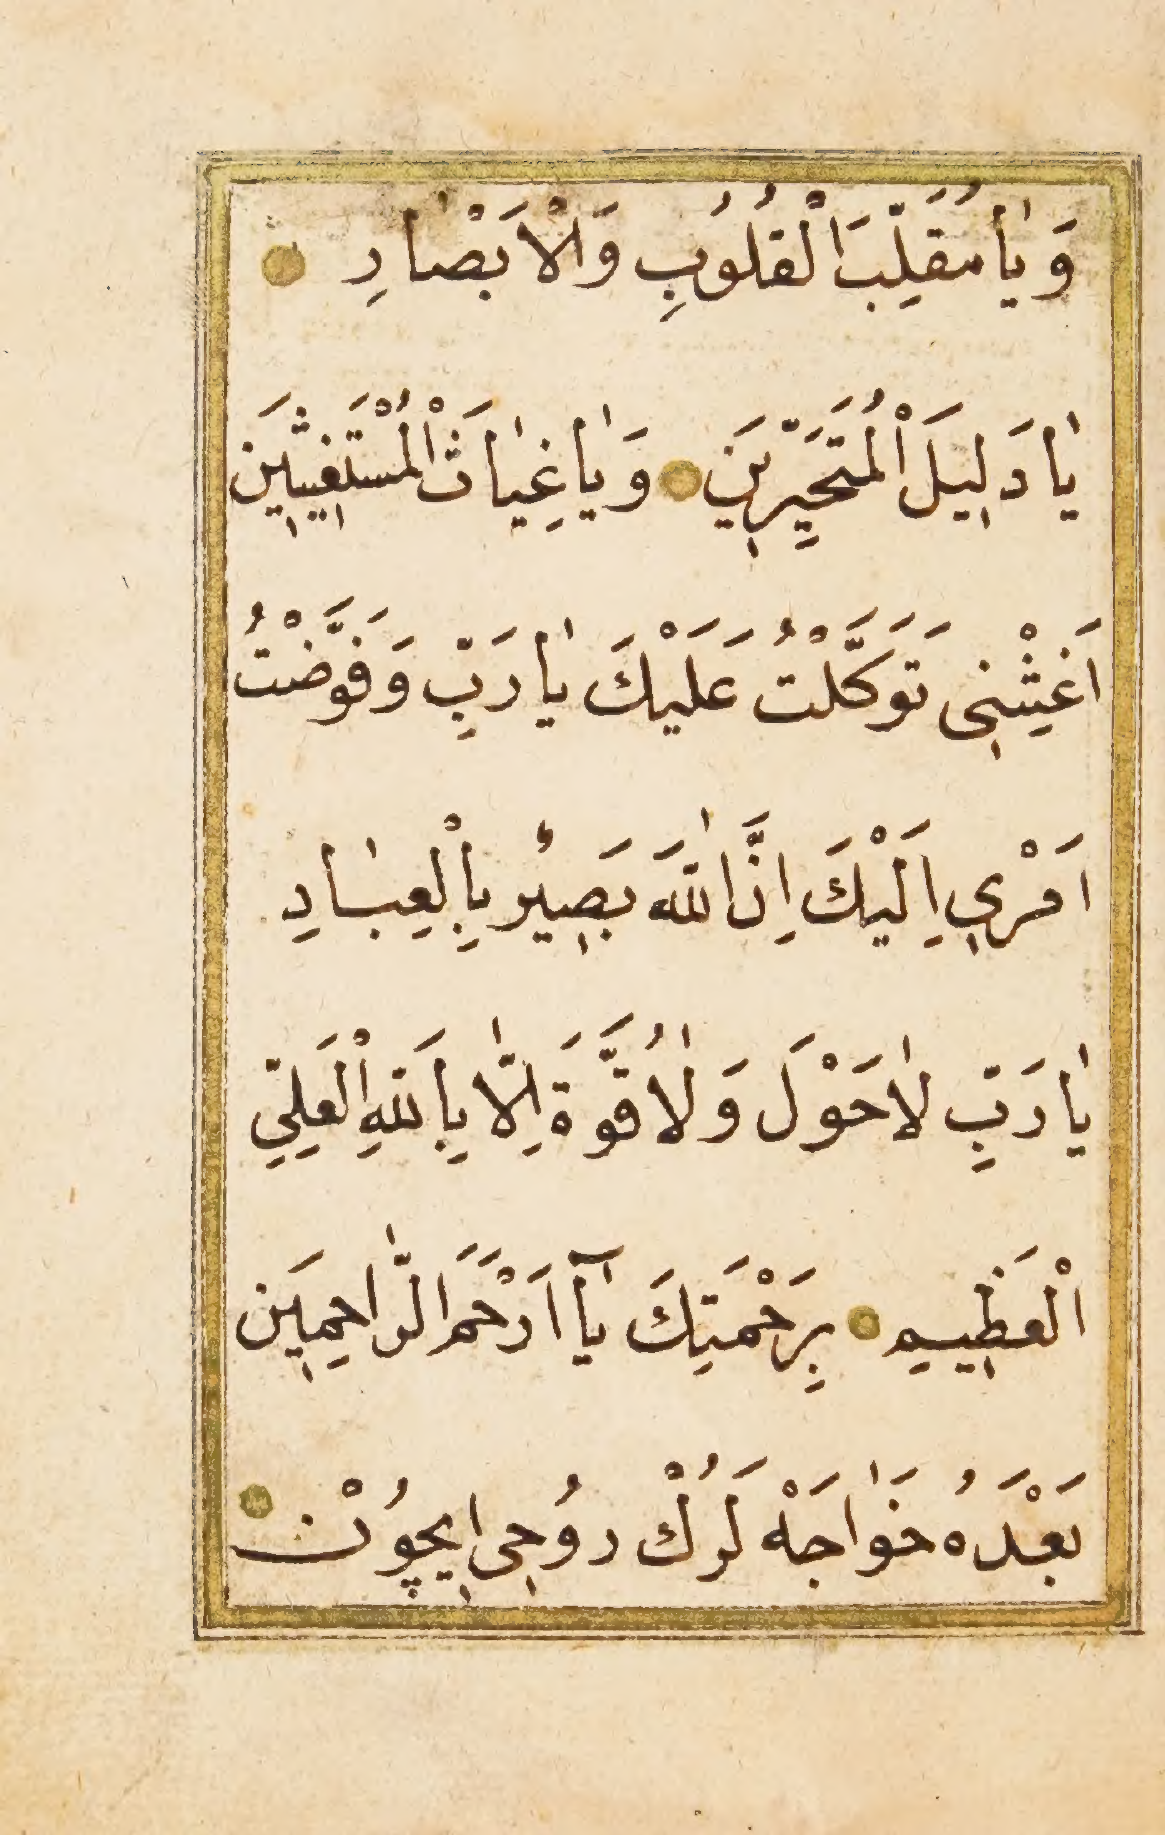 وَيٰا مُقَلِّبَ الْقُلُوبِ وَالْاَبْصٰارِ
يٰا دَلِيلَ الْمُتَحَيِّرِينَ وَيٰا غِيٰاثَ الْمُسْتَغِيثِينَ
اَغِثْنِى تَوَكَّلْتُ عَلَيْكَ يٰا رَبِّ وَفَوَّضْتُ
اَمْرِي اِلَيْكَ اِنَّ اللّٰهَ بَصِيرٌ بِالْعِبٰادِ
يٰا رَبِّ لٰا حَوْلَ وَلٰا قُوَّةَ اِلّٰا بِاَللّٰهِ الْعَلِىِّ
الْعَظِيمِ بِرَحْمَتِكَ يٰآ اَرْحَمَ الرّٰاحِمِينَ
بَعْدَهُ خَوٰاجَهْ لَرُكْ رُوحِى اِيچُونْ